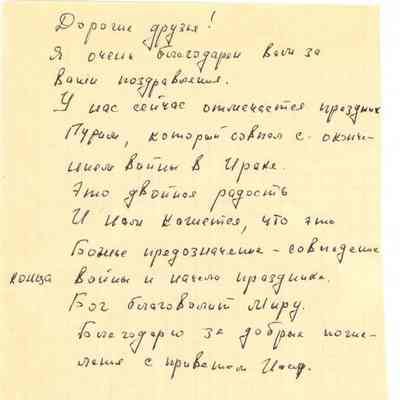 Дорогие друзья!
Я очень благодарен Вам за
Ваши поздравления.
У нас сейчас отмечается праздник
Пурим, который совпал с оконча-
нием войны в Ираке.
Это двойная радость
И нам кажется, что это
Божье предозначение - совпадение
конца войны и начала праздника.
Бог благоволит миру.
Благодарю за добрые поже-
лания с приветом